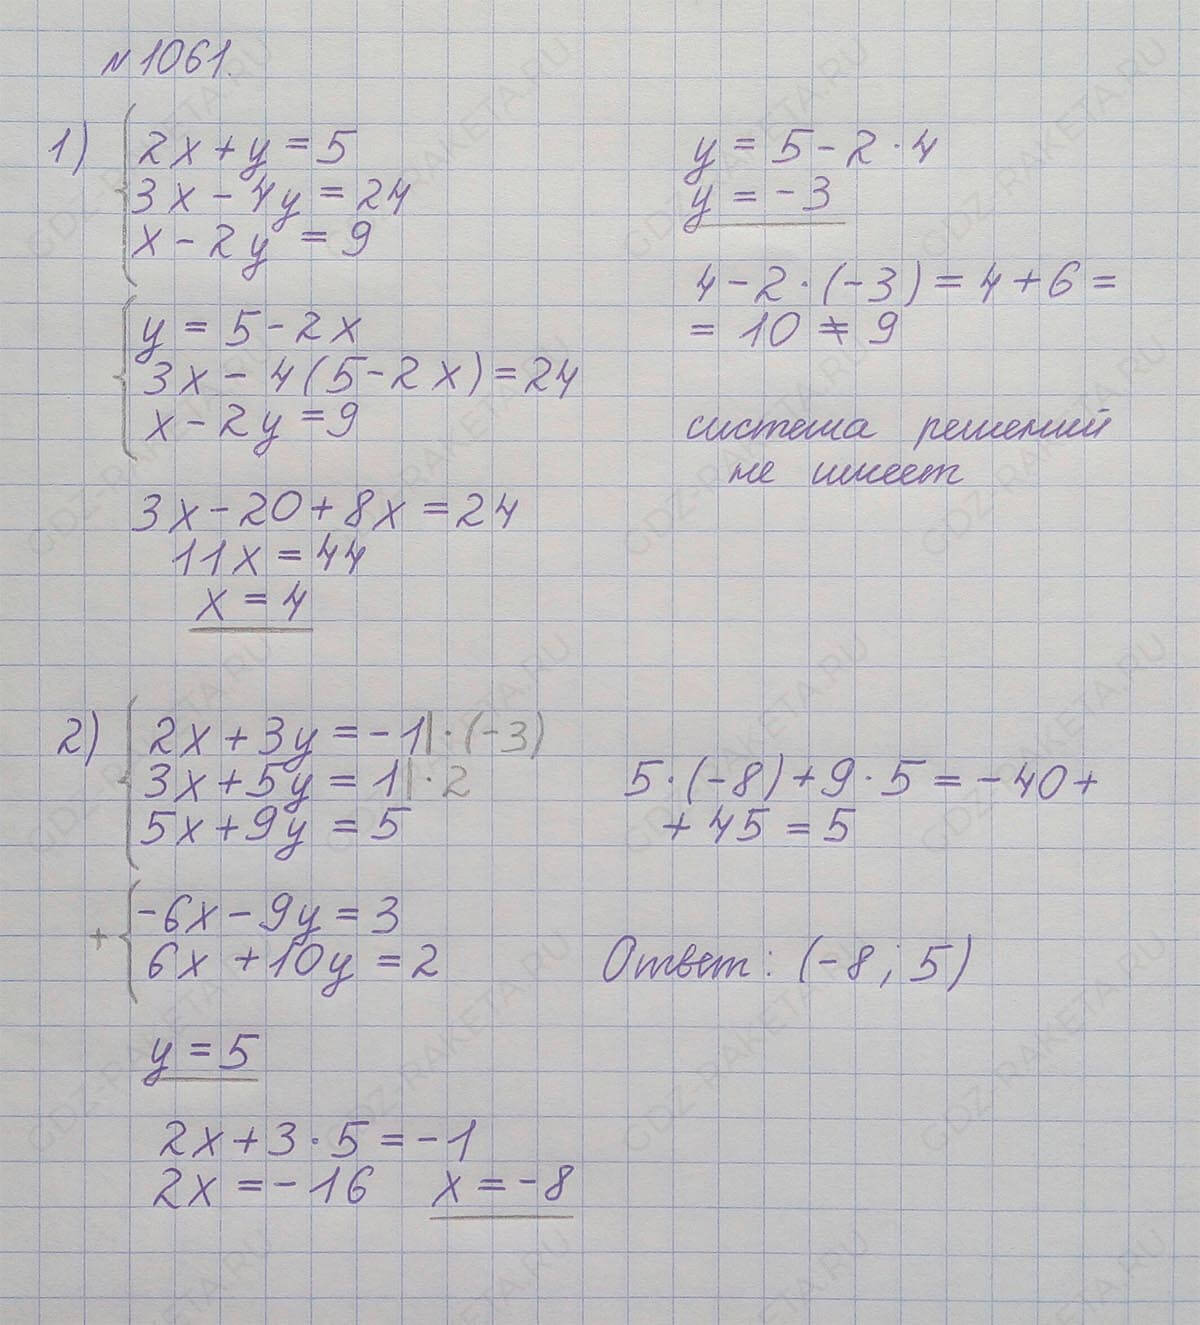 №1061.
1) 2x + y = 5
3x - 4y = 24
x - 2y = 9
y = 5 - 2x
3x - 4(5 - 2x) = 24
x - 2y = 9
3x - 20 + 8x = 24
11x = 44
x = 4
y = 5 - 2 · 4
y = -3
4 - 2 · (-3) = 4 + 6 =
= 10 ≠ 9
система решений
не имеет
2) 2x + 3y = -1 | · (-3)
3x + 5y = 1 | · 2
5x + 9y = 5
+ -6x - 9y = 3
6x + 10y = 2
y = 5
2x + 3 · 5 = -1
2x = -16 x = -8
5 · (-8) + 9 · 5 = -40 +
+ 45 = 5
Ответ: (-8; 5)
GDZ-RAKETA.RU